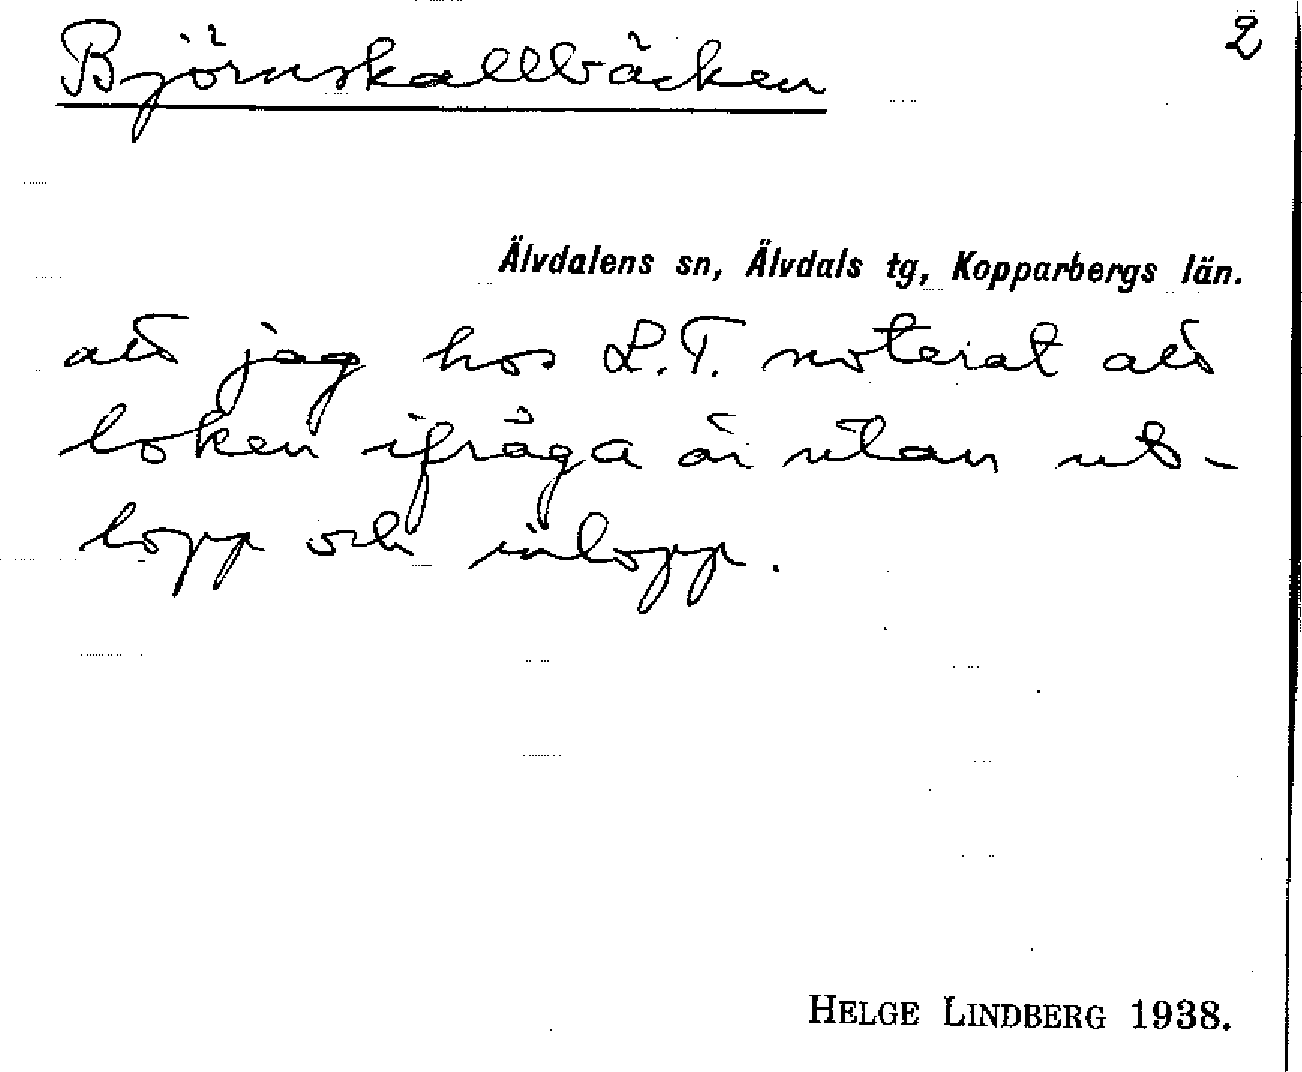 Björnskallbäcken
2
Älvdalens sn, Älvdals tg, Kopparbergs län.
att jag hos L.T. noterat att
loken ifråga är utan ut-
lopp och inlopp.
HELGE LINDBERG 1938.